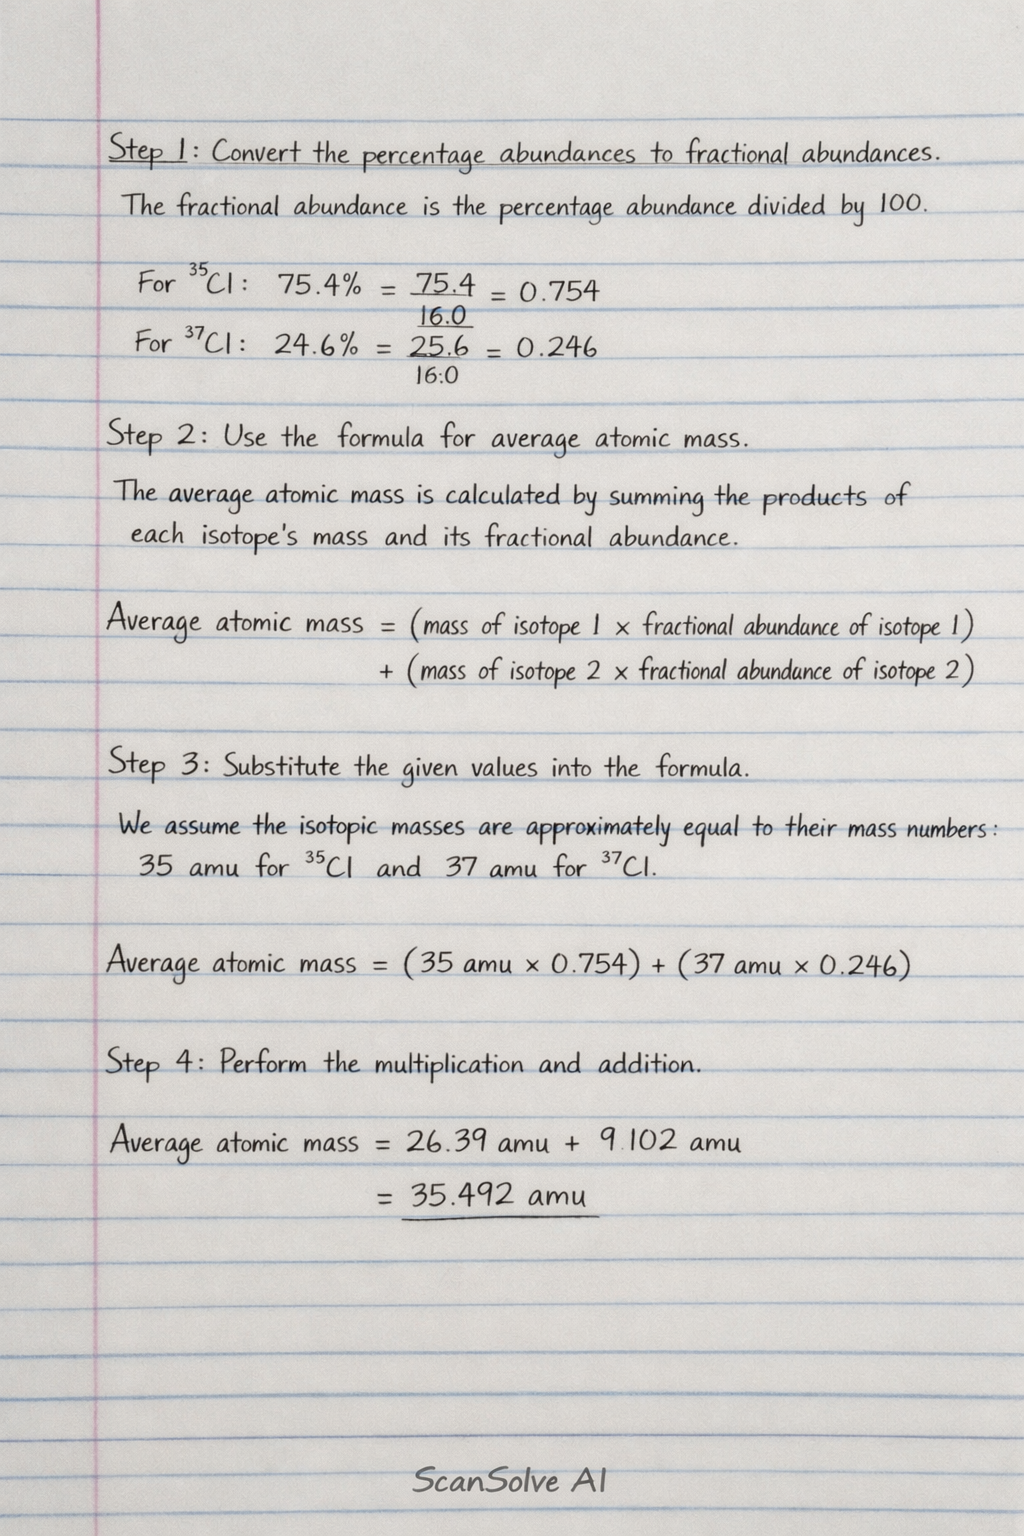 Step 1: Convert the percentage abundances to fractional abundances.
The fractional abundance is the percentage abundance divided by 100.
For ³⁵Cl: 75.4% = 75.4/16.0 = 0.754
For ³⁷Cl: 24.6% = 25.6/16:0 = 0.246
Step 2: Use the formula for average atomic mass.
The average atomic mass is calculated by summing the products of
each isotope's mass and its fractional abundance.
Average atomic mass = (mass of isotope 1 × fractional abundance of isotope 1)
+ (mass of isotope 2 × fractional abundance of isotope 2)
Step 3: Substitute the given values into the formula.
We assume the isotopic masses are approximately equal to their mass numbers:
35 amu for ³⁵Cl and 37 amu for ³⁷Cl.
Average atomic mass = (35 amu × 0.754) + (37 amu × 0.246)
Step 4: Perform the multiplication and addition.
Average atomic mass = 26.39 amu + 9.102 amu
= 35.492 amu
ScanSolve AI